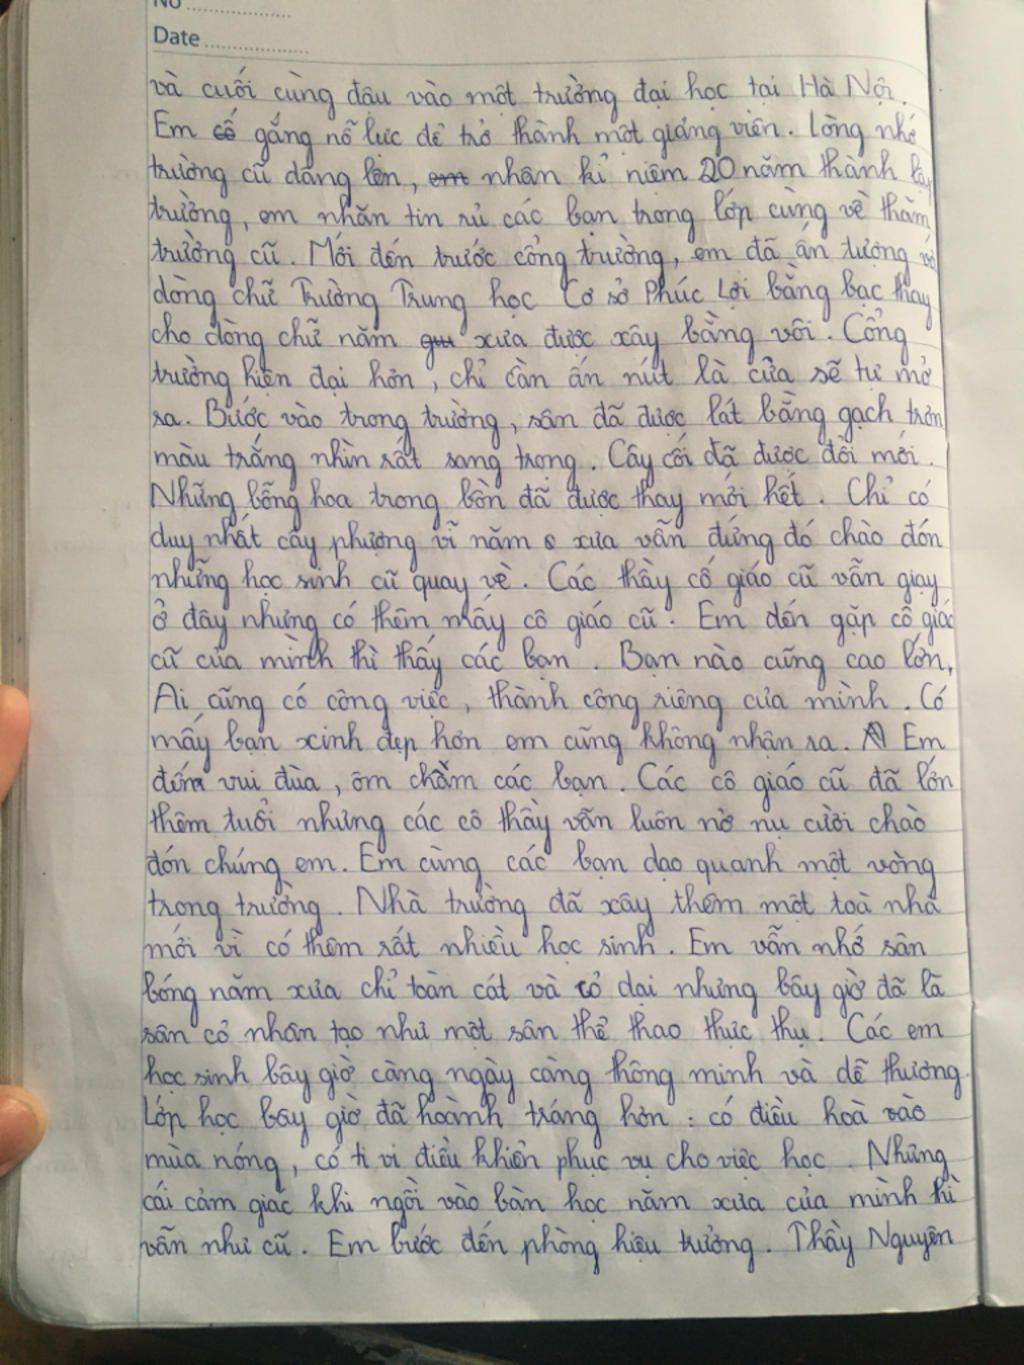 No
Date
và cuối cùng đậu vào một trường đại học tại Hà Nội.
Em cố gắng nỗ lực để trở thành một giảng viên. Lòng nhớ
trường cũ dâng lên, em nhân kỉ niệm 20 năm thành lập
trường, em nhắn tin rủ các bạn trong lớp cùng về thăm
trường cũ. Mới đến trước cổng trường, em đã ấn tượng với
dòng chữ Trường Trung học Cơ sở Phúc Lợi bằng bạc thay
cho dòng chữ năm xưa được xây bằng vôi. Cổng
trường hiện đại hơn, chỉ cần ấn nút là cửa sẽ tự mở
ra. Bước vào trong trường, sân đã được lát bằng gạch trơn
màu trắng nhìn rất sang trọng. Cây cối đã được đổi mới.
Những bông hoa trong bồn đã được thay mới hết. Chỉ có
duy nhất cây phượng vĩ năm xưa vẫn đứng đó chào đón
những học sinh cũ quay về. Các thầy cố giáo cũ vẫn giạy
ở đây nhưng có thêm mấy cô giáo cũ. Em đến gặp cô giáo
cũ của mình thì thấy các bạn. Bạn nào cũng cao lớn,
Ai cũng có công việc, thành công riêng của mình. Có
mấy bạn xinh đẹp hơn em cũng không nhận ra. Em
đến vui đùa, ôm chầm các bạn. Các cô giáo cũ đã lớn
thêm tuổi nhưng các cô thầy vẫn luôn nở nụ cười chào
đón chúng em. Em cùng các bạn dạo quanh một vòng
trong trường. Nhà trường đã xây thêm một toà nhà
mới vì có thêm rất nhiều học sinh. Em vẫn nhớ sân
bóng năm xưa chỉ toàn cát và cỏ dại nhưng bây giờ đã là
sân cỏ nhân tạo như một sân thể thao thực thụ. Các em
học sinh bây giờ càng ngày càng thông minh và dễ thương.
Lớp học bây giờ đã hoành tráng hơn : có điều hoà vào
mùa nóng, có ti vi điều khiển phục vụ cho việc học. Những
cái cảm giác khi ngồi vào bàn học năm xưa của mình thì
vẫn như cũ. Em bước đến phòng hiệu trưởng. Thầy Nguyên